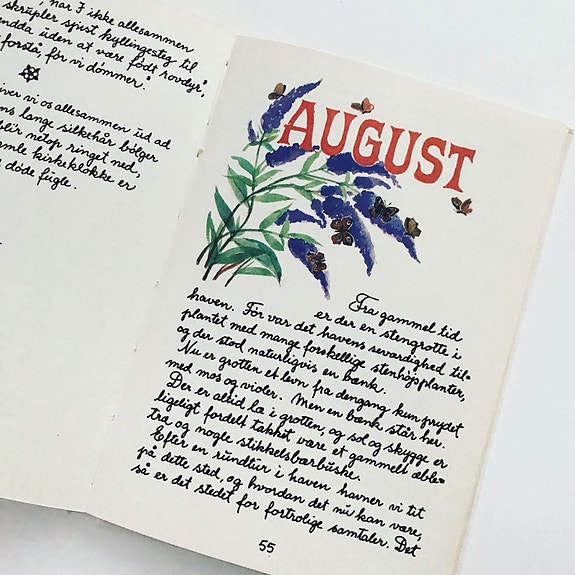 , har I ikke allesammen
skrupler spist kyllingesteg til
endda uden at være født rovdyr,
forstå, før vi dømmer."
iver vi os allesammen ud ad
ns lange silkehår bølger
blir netop ringet ned,
amle kirkeklokke er
døde fugle.
AUGUST
Fra gammel tid
er der en stengrotte i
haven. Før var det havens seværdighed til=
plantet med mange forskellige stenhøjsplanter,
og der stod naturligvis en bænk.
Nu er grotten et levn fra dengang kun prydet
med mos og violer. Men en bænk står her.
Der er altid læ i grotten, og sol og skygge er
ligeligt fordelt takket være et gammelt æble=
træ og nogle stikkelsbærbuske.
Efter en rundtur i haven havner vi tit
på dette sted, og hvordan det nu kan være,
så er det stedet for fortrolige samtaler. Det
55